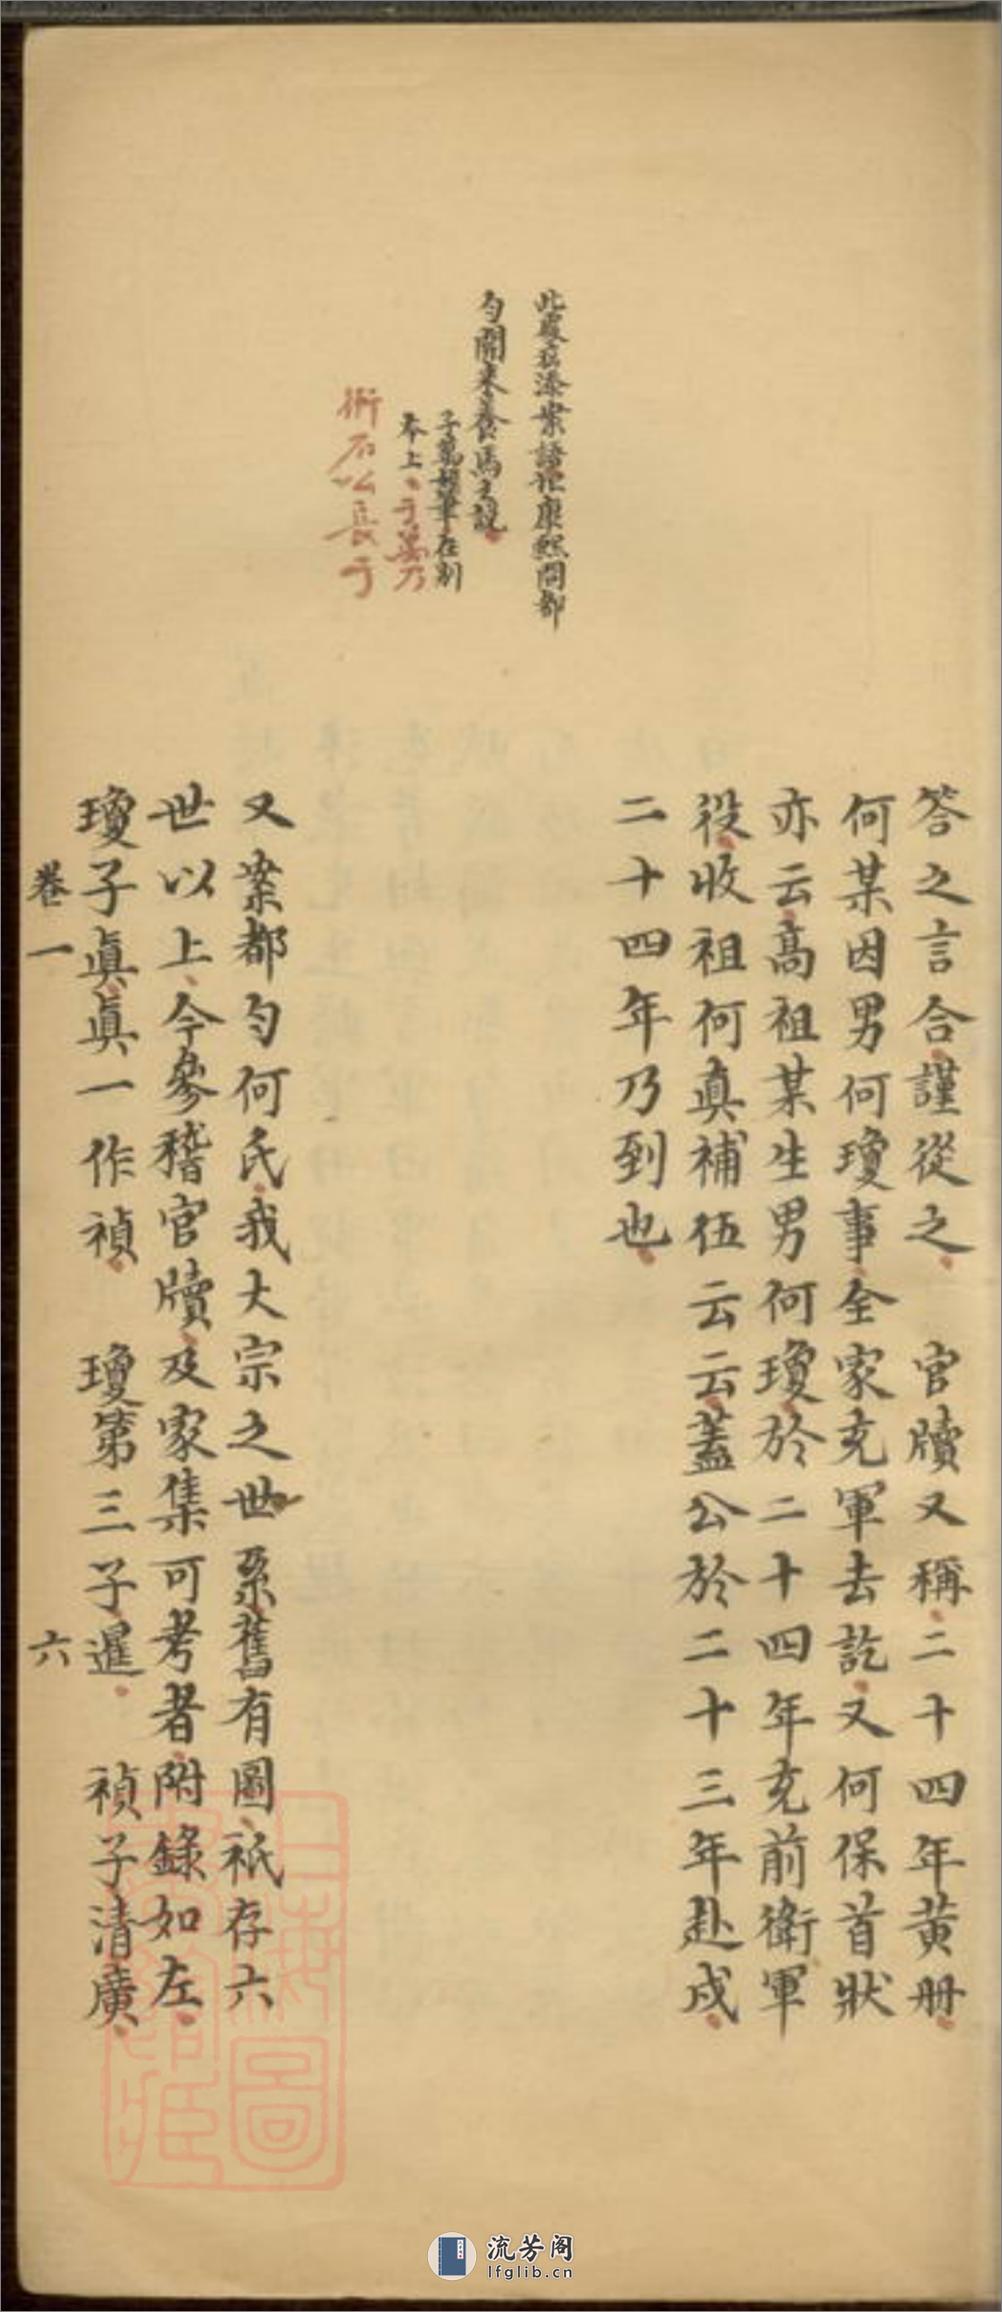 此處應添案語記康熙間都
勻開來養馬之說
子萬胡筆在別
本上
子萬乃
衡石公長子
答之言合謹從之　官牘又稱二十四年黃册
何某因男何瓊事全家充軍去訖又何保首狀
亦云高祖某生男何瓊於二十四年充前衛軍
役收祖何真補伍云云蓋公於二十三年赴戍
二十四年乃到也
又案都勻何氏我大宗之世系舊有圖祇存六
世以上今參稽官牘及家集可考者附錄如左
瓊子眞眞一作禎　瓊第三子暹　禎子清廣
卷一　六
流芳阁
lfglib.cn